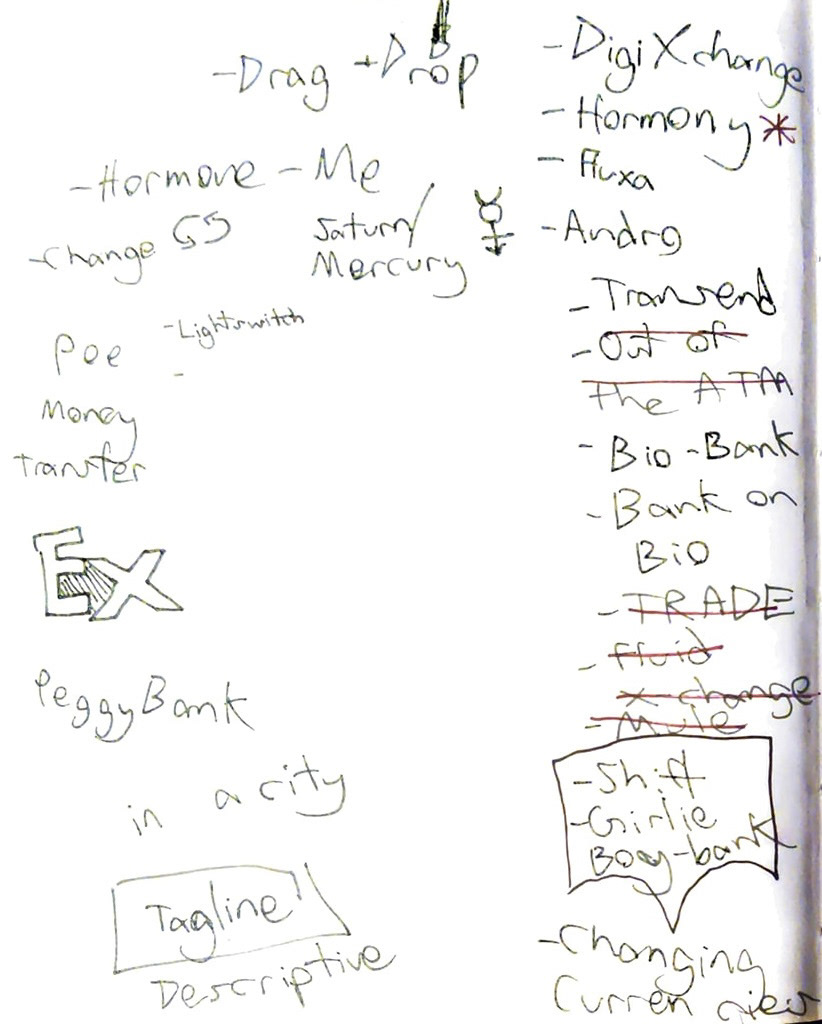 -Drag + Drop
-Hormone - Me
-Change
Saturn/
Mercury
Poe
-Lightswitch
-
Money
Transfer
Ex
PeggyBank
in a city
Tagline
Descriptive
-DigiXchange
-Hormony*
-Fluxa
-Andro
-Transend
-Out of
the ATM
-Bio-Bank
-Bank on
Bio
-TRADE
-Fluid
x-change
-Mule
-Shift
-Girlie
Boy-bank
-Changing
Curren cies